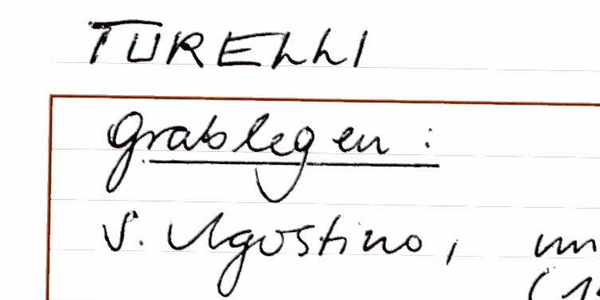 TURELLI
Grablegen:
S. Agostino,